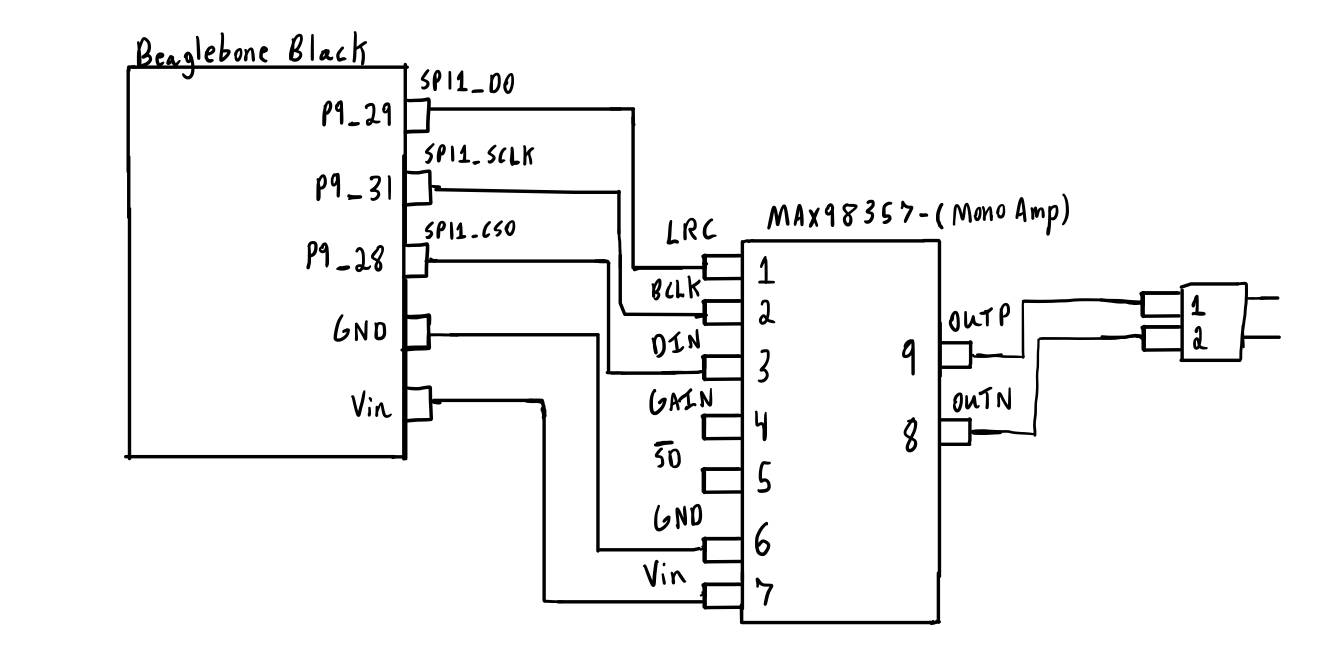 Beaglebone Black
SPI1_D0
P9_29
SPI1_SCLK
P9_31
SPI1_CS0
P9_28
GND
Vin
MAX98357-(Mono Amp)
LRC
1
BCLK
2
DIN
3
GAIN
4
SD
5
GND
6
Vin
7
OUTP
9
OUTN
8
1
2